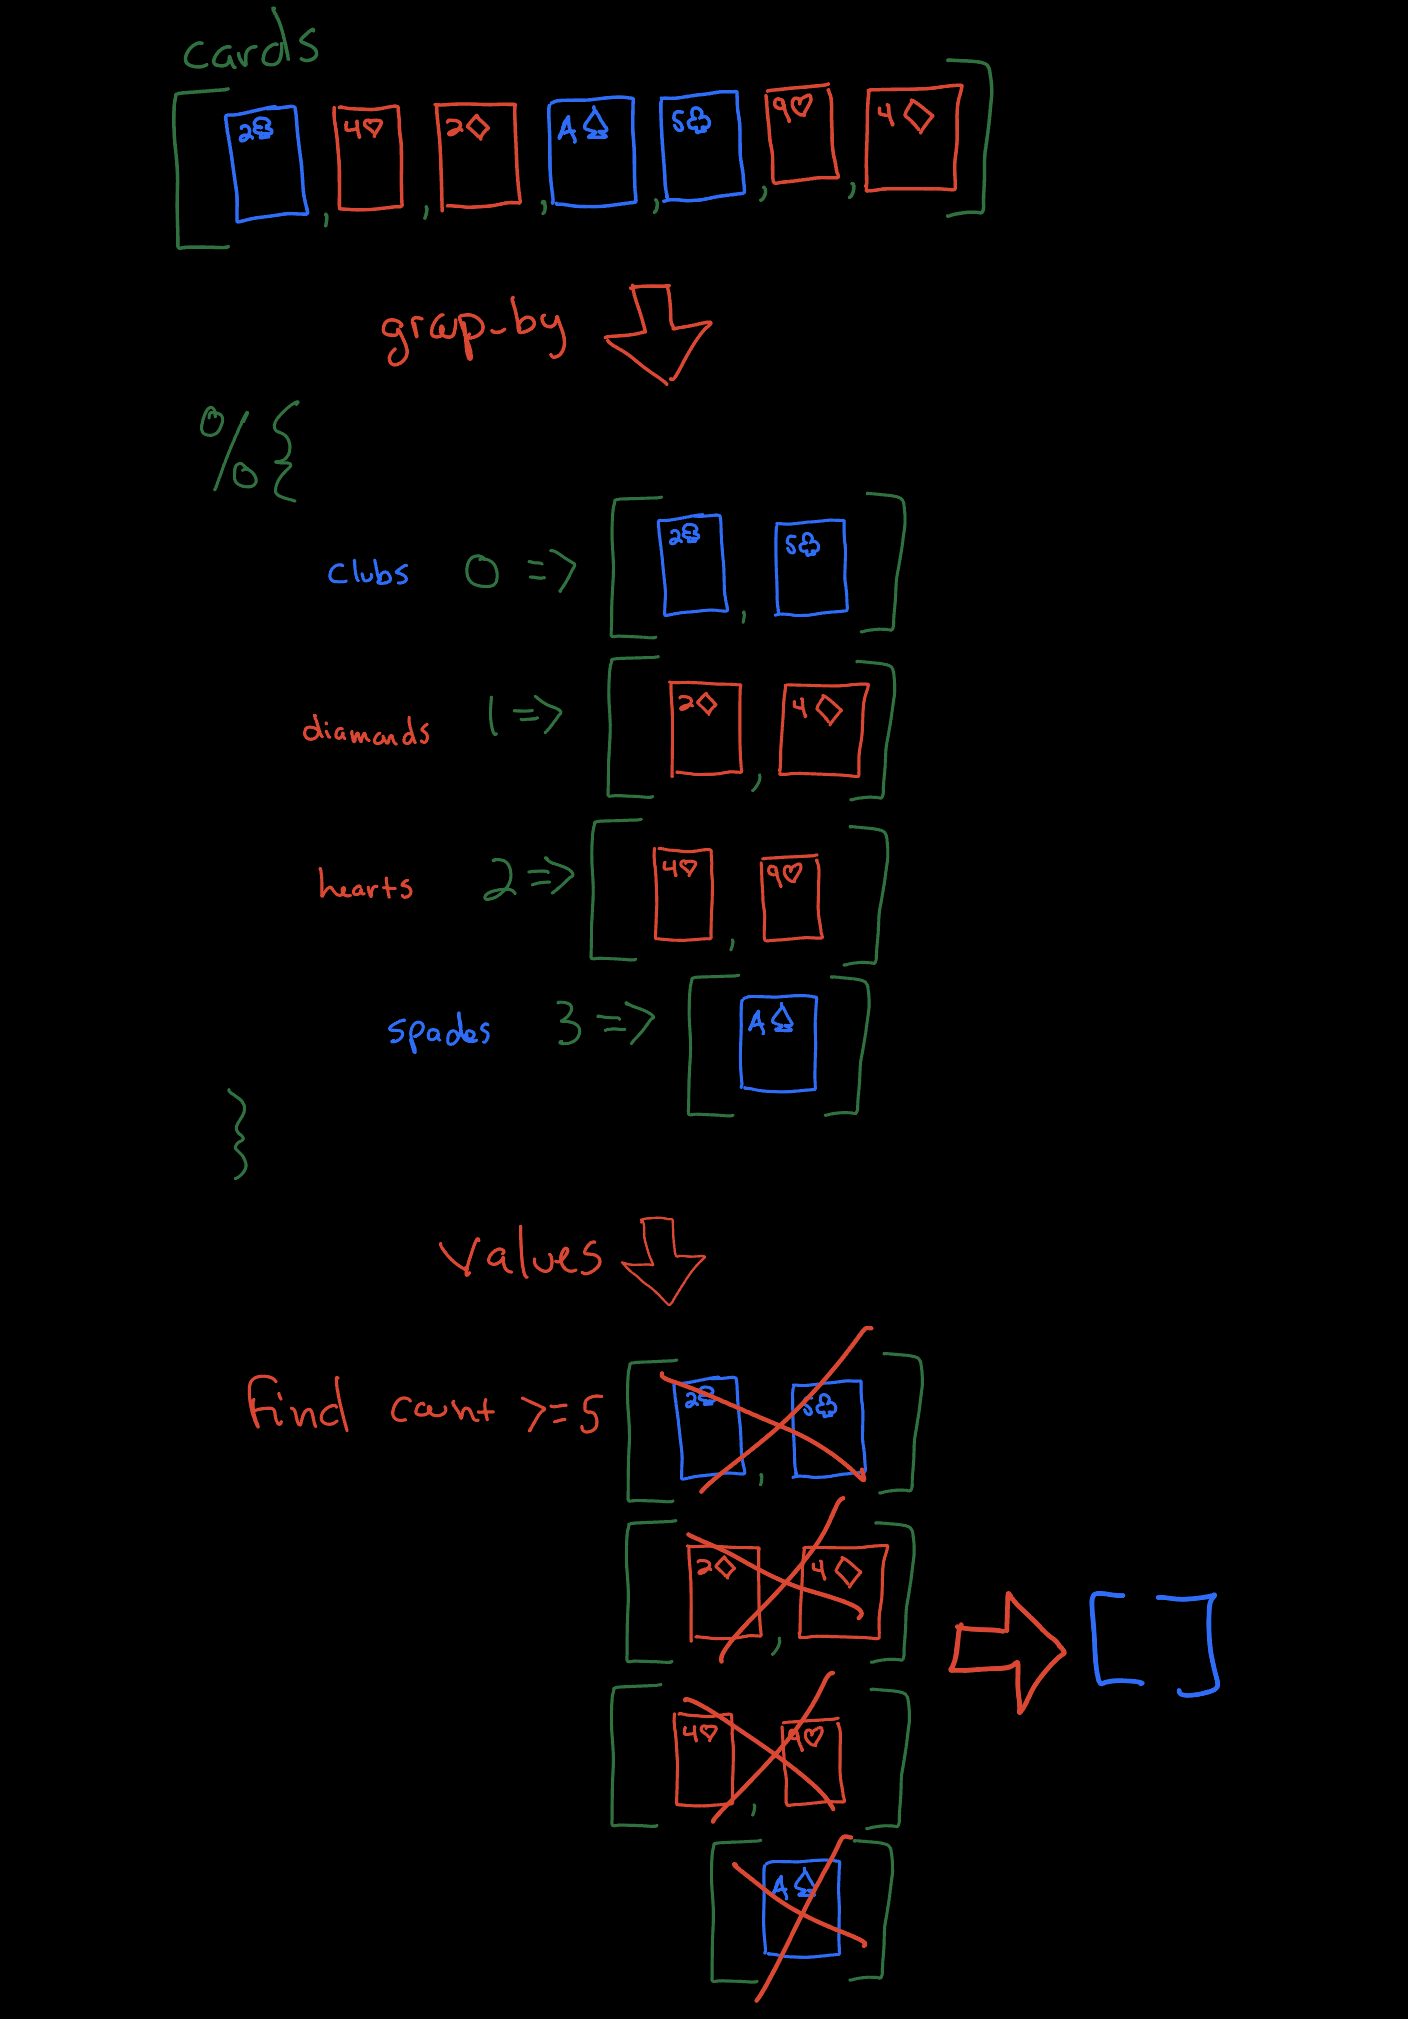 cards
[ 2♣ , 4♡ , 2♢ , A♤ , 5♧ , 9♡ , 4♢ ]
group_by
%{
clubs 0 => [ 2♣ , 5♧ ]
diamonds 1 => [ 2♢ , 4♢ ]
hearts 2 => [ 4♡ , 9♡ ]
spades 3 => [ A♤ ]
}
values
find count >=5 [ 2♣ , 5♧ ]
[ 2♢ , 4♢ ]
[ ]
[ 4♡ , 9♡ ]
[ A♤ ]